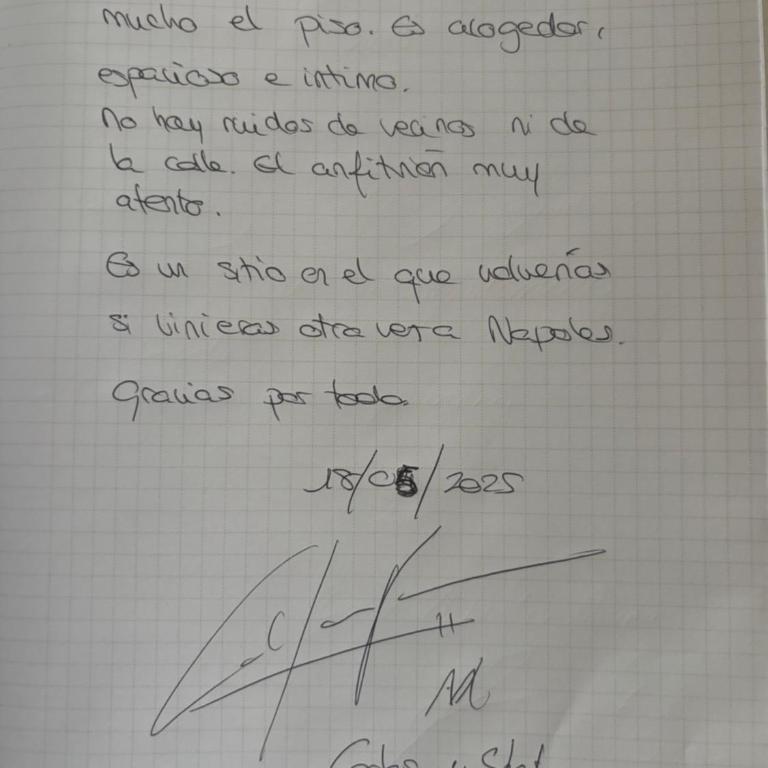 mucho el piso. Es acogedor,
espacioso e intimo.
No hay ruidos de vecinos ni de
la calle. El anfitrión muy
atento.
Es un sitio en el que volverías
si vinieras otra vez a Napoles.
Gracias por todo.
18/05/2025